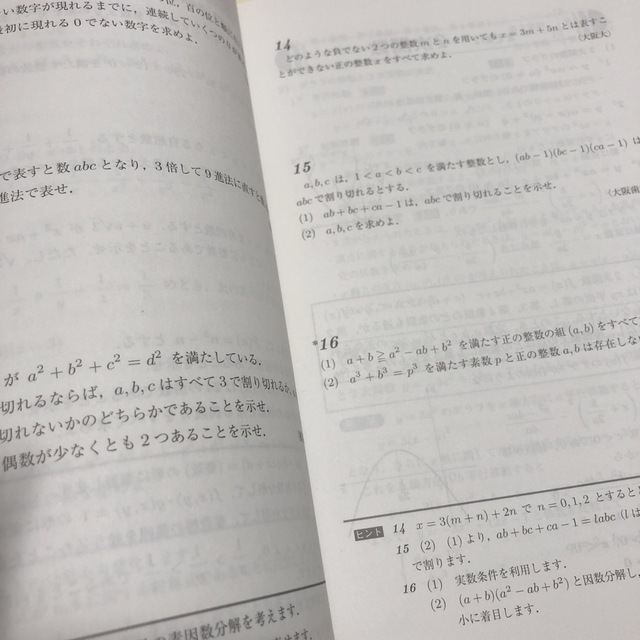 い数字が現れるまでに，連続していくつの
最初に現れる 0 でない数字を求めよ．
で表すと数 abc となり，3 倍して 9 進法に直すと
進法で表せ．
が a² + b² + c² = d² を満たしている．
切れるならば，a, b, c はすべて 3 で割り切れるか，
切れないかのどちらかであることを示せ．
偶数が少なくとも 2 つあることを示せ．
の素因数分解を考えます．
14
どのような負でない 2 つの整数 m と n を用いても x = 3m + 5n とは表すこ
とができない正の整数 x をすべて求めよ．
（大阪大）
15
a, b, c は，1 < a < b < c を満たす整数とし，(ab − 1)(bc − 1)(ca − 1) は
abc で割り切れるとする．
(1) ab + bc + ca − 1 は，abc で割り切れることを示せ．
(2) a, b, c を求めよ．
*16
(1) a + b ≧ a² − ab + b² を満たす正の整数の組 (a, b) をすべて
(2) a³ + b³ = p³ を満たす素数 p と正の整数 a, b は存在しな
ヒント 14 x = 3(m + n) + 2n で n = 0, 1, 2 とすると
15 (2) (1) より，ab + bc + ca − 1 = labc (l は
で割ります．
16 (1) 実数条件を利用します．
(2) (a + b)(a² − ab + b²) と因数分解し，
小に着目します．